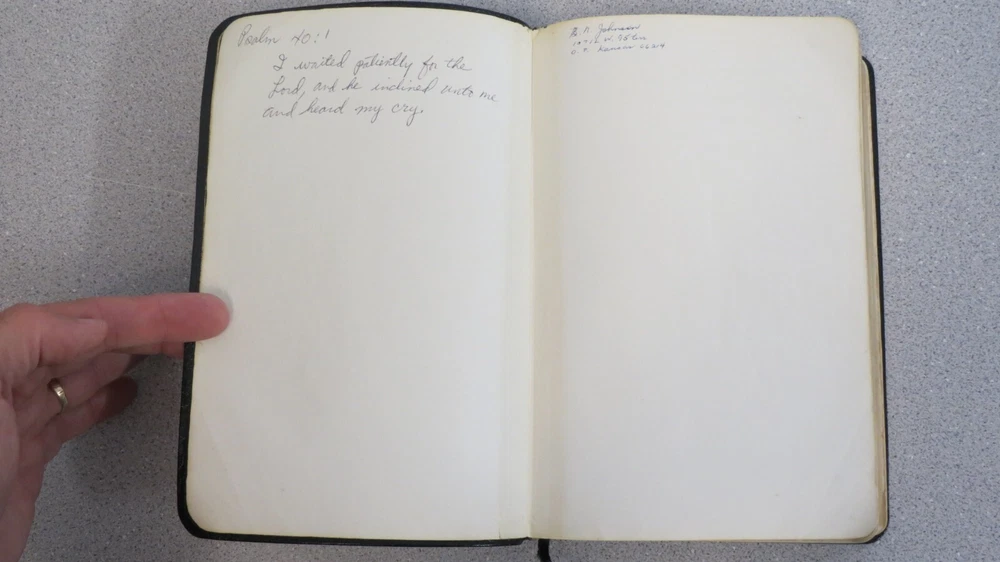 Psalm 40:1
I waited patiently for the
Lord, and he inclined unto me
and heard my cry.
N Johnson
W 95
O. P. Kansas 66214